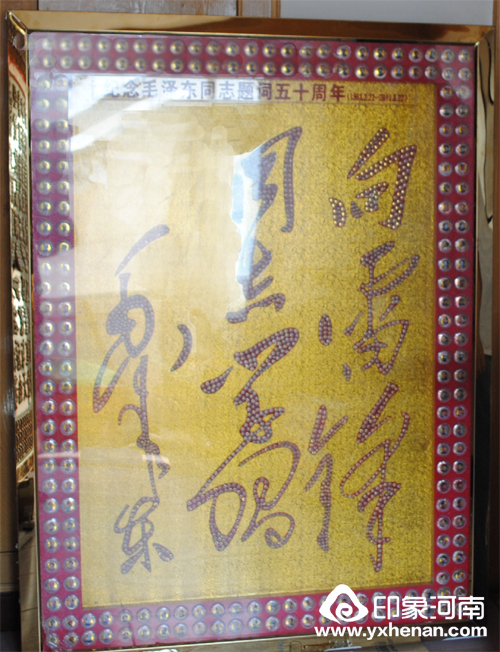 纪念毛泽东同志题词五十周年
向雷锋
同志学习
毛泽东
印象河南
www.yxhenan.com